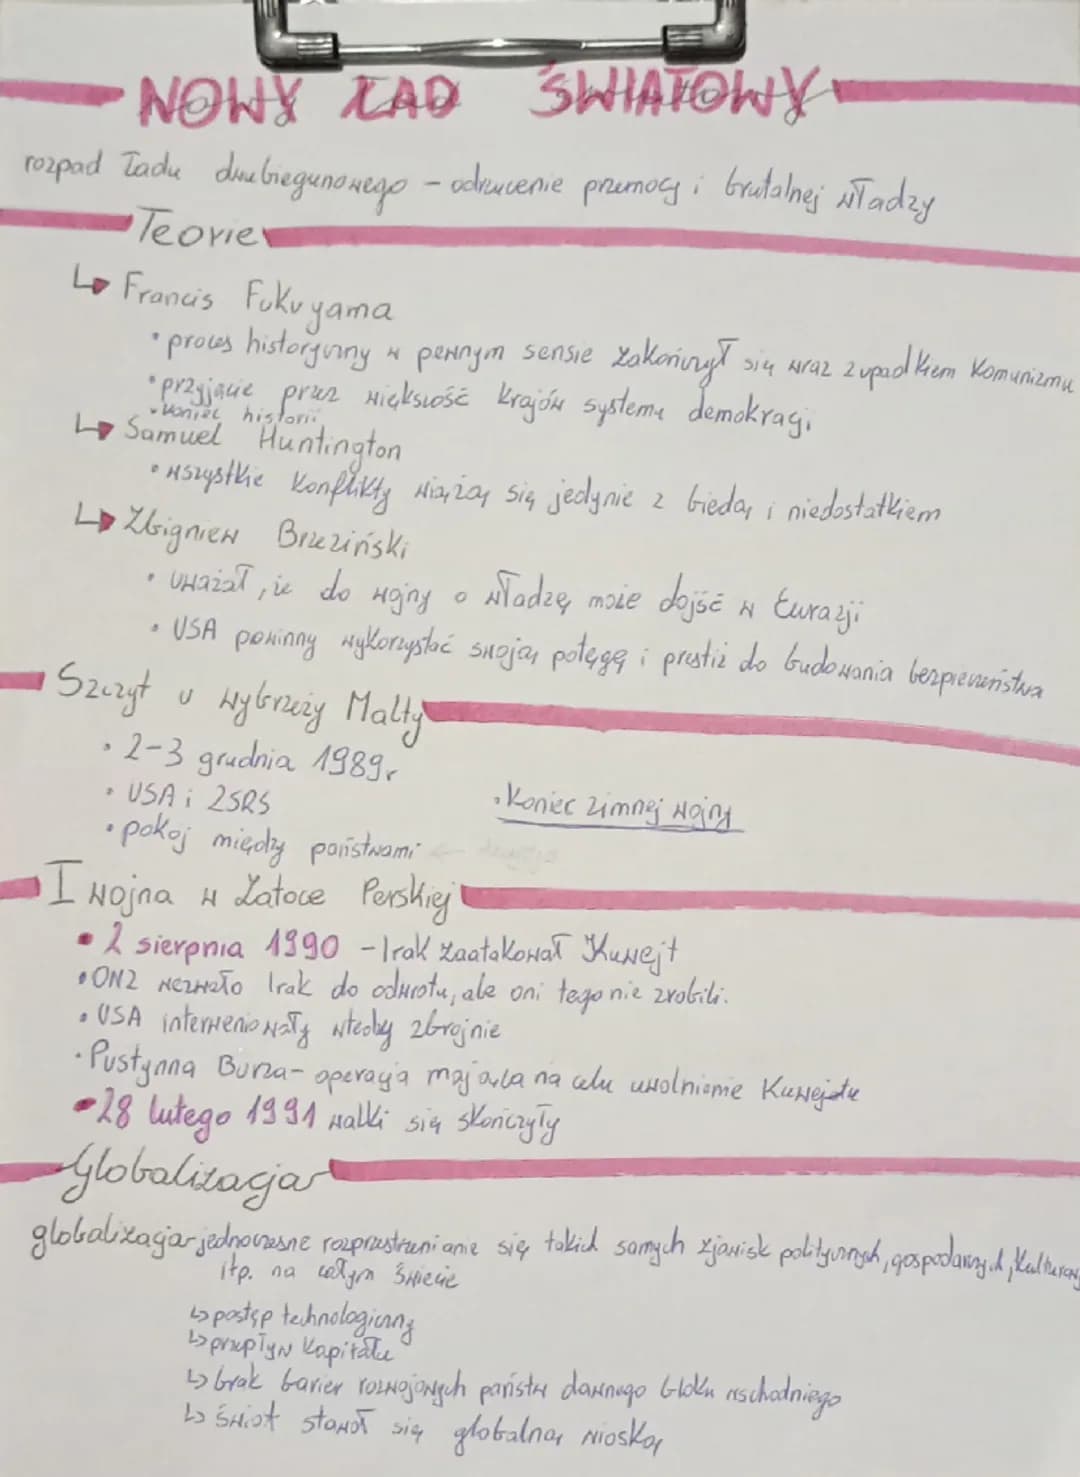 NOWY ŁAD ŚWIATOWY
rozpad ładu dwubiegunowego – odrzucenie przemocy i brutalnej władzy
Teorie
↳ Francis Fukuyama
• proces historyczny w pewnym sensie zakończył się wraz z upadkiem komunizmu
• przyjęcie przez większość krajów systemu demokracji
• koniec historii
↳ Samuel Huntington
• wszystkie konflikty wiążą się jedynie z biedą i niedostatkiem
↳ Zbigniew Brzeziński
• uważał, że do wojny o władzę może dojść w Eurazji
• USA powinny wykorzystać swoją potęgę i prestiż do budowania bezpieczeństwa
Szczyt u wybrzeży Malty
• 2-3 grudnia 1989r
• USA i ZSRS
• Koniec zimnej wojny
• pokój między państwami
I wojna w Zatoce Perskiej
• 2 sierpnia 1990 – Irak zaatakował Kuwejt
• ONZ wezwało Irak do odwrotu, ale oni tego nie zrobili.
• USA interweniowały wtedy zbrojnie
• Pustynna Burza – operacja mająca na celu uwolnienie Kuwejtu
• 28 lutego 1991 walki się skończyły
Globalizacja
globalizacja – jednoczesne rozprzestrzenianie się takich samych zjawisk politycznych, gospodarczych,
itp. na całym świecie
↳ postęp technologiczny
↳ przepływ kapitału
↳ brak barier rozwojowych państw dawnego bloku wschodniego
↳ świat stawał się globalną wioską